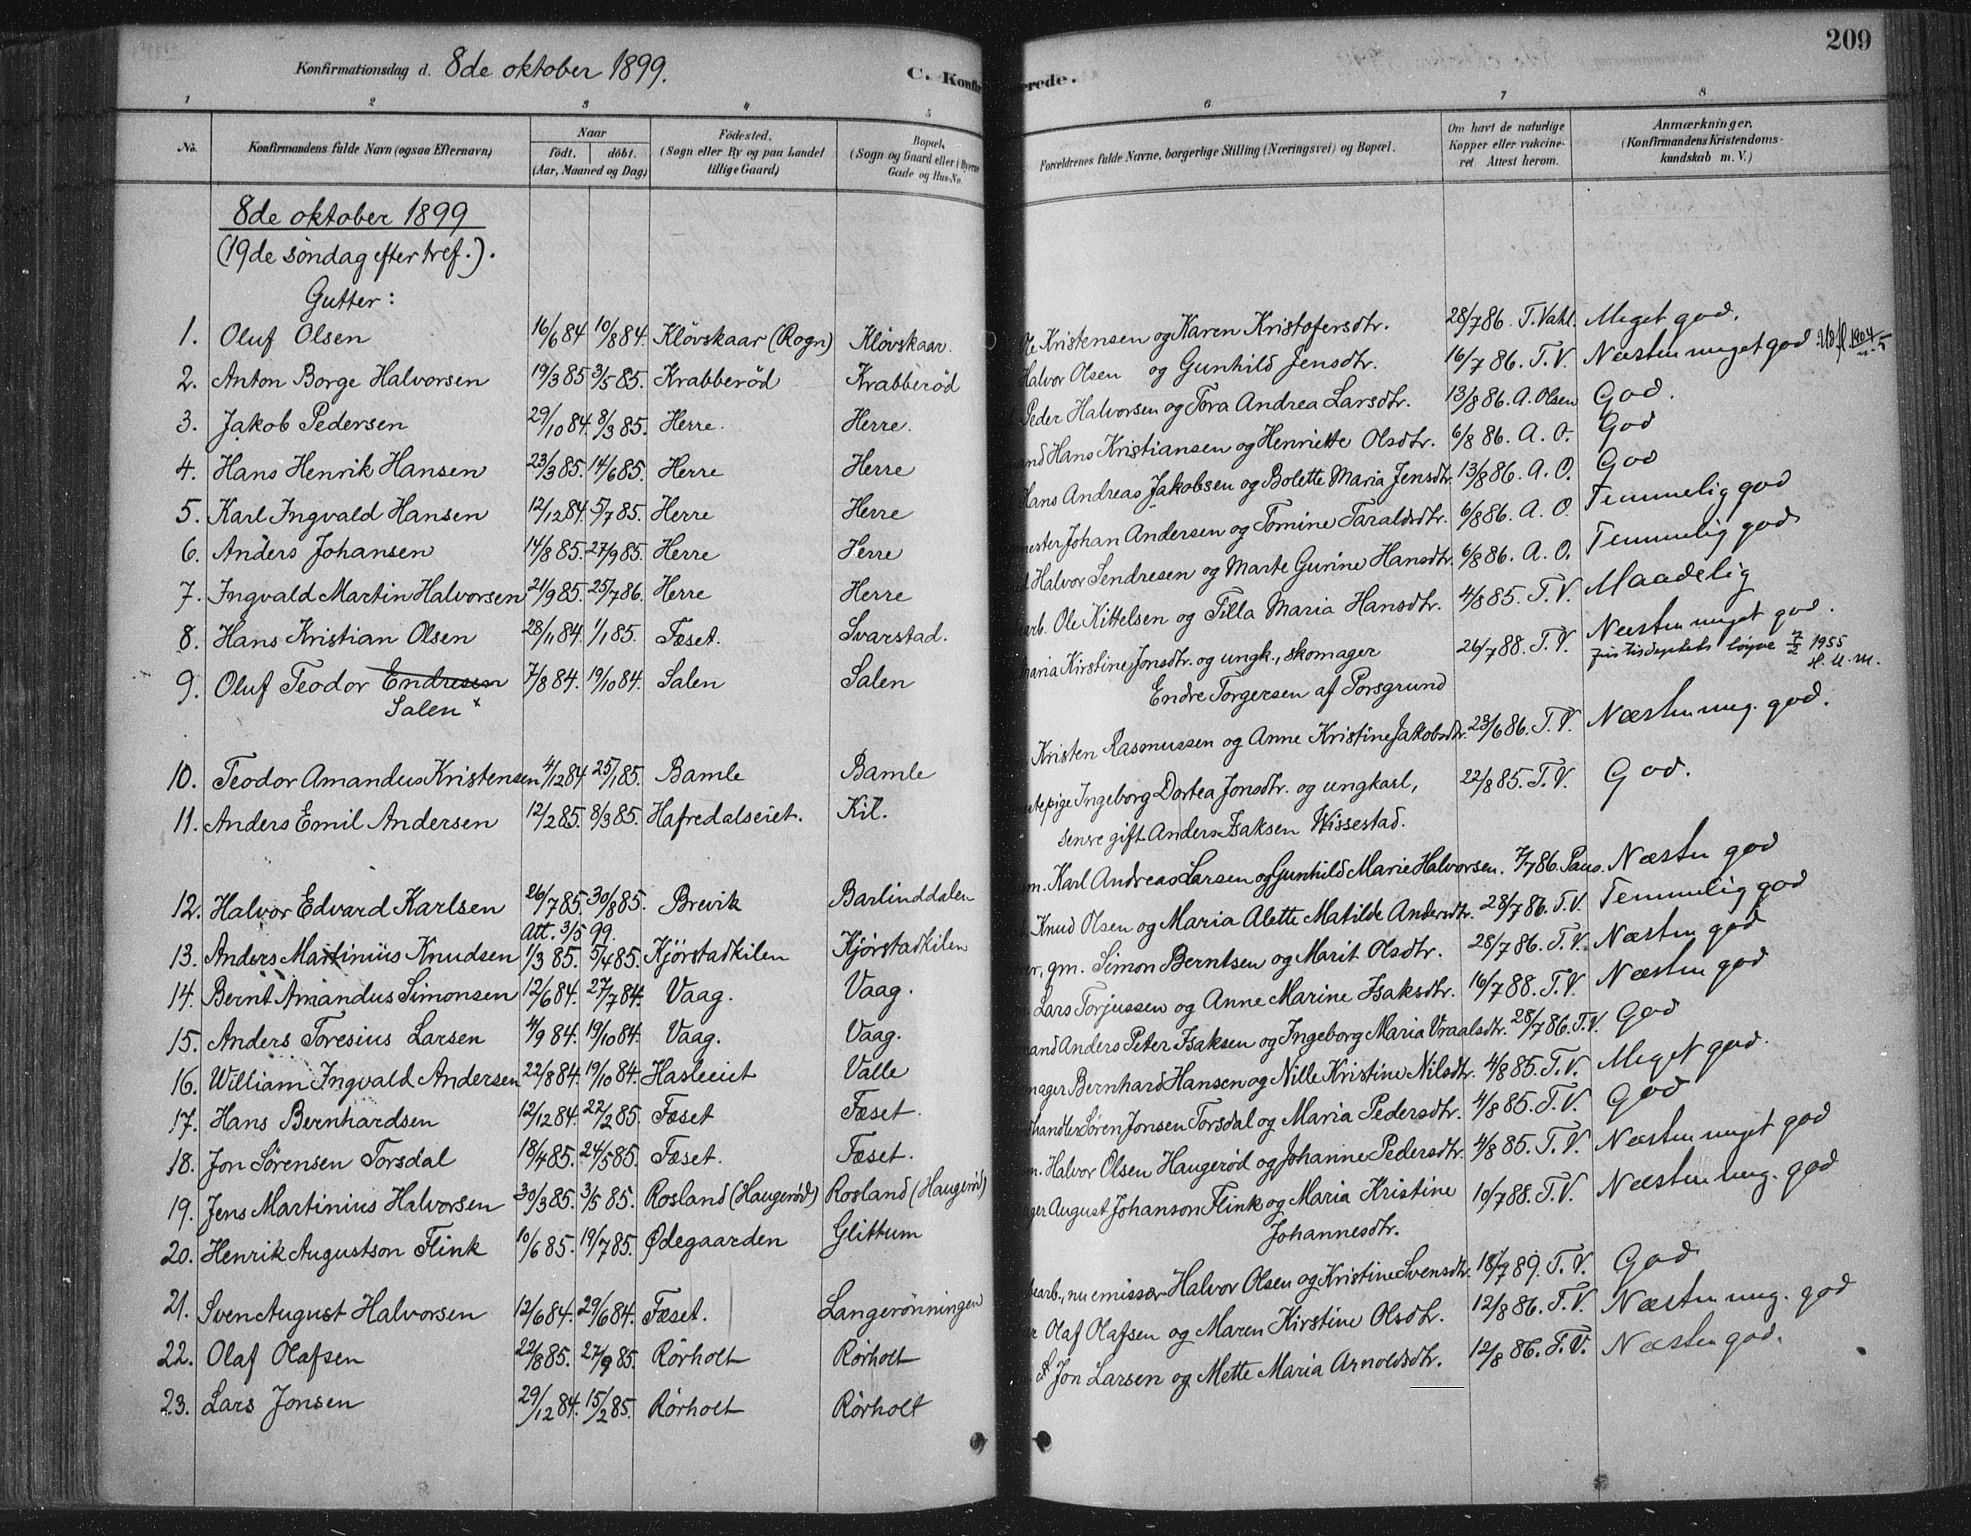 209
Konfirmationsdag d. 8de oktober 1899.
C. Konfir erede.
1 2 3 4 5 6 7 8
No. Konfirmandens fulde Navn (ogsaa Efternavn) Naar født. døbt. (Aar, Maaned og Dag) Fødested. (Sogn eller By og paa Landet tillige Gaard) Bopæl. (Sogn og Gaard eller i Byerne Gade og Hus-No. Forældrenes fulde Navne, borgerlige Stilling (Næringsvei) og Bopæl. Om havt de naturlige Kopper eller vakcineret Attest herom. Anmærkninger. (Konfirmandens Kristendomskundskab m. V.)
8de oktober 1899
(19de søndag efter tref.).
Gutter:
1. Oluf Olsen 16/6 84 10/8 84. Kløvskaar (Rogn) Kløvskaar. Ole Kristensen og Karen Kristofersdtr. 28/7 86. T. Vahl. Meget god.
2. Anton Borge Halvorsen 19/3 85 3/5 85. Krabberød Krabberød Halvor Olsen og Gunhild Jensdtr. 16/7 86. T. V. Næsten meget god. 1904
3. Jakob Pedersen 29/10 84. 8/3 85. Herre. Herre. Peder Halvorsen og Tora Andrea Larsdtr. 13/8 86. A. Olsen God.
4. Hans Henrik Hansen 23/3 85. 14/6 85. Herre Herre and Hans Kristiansen og Henriette Olsdtr. 6/8 86. A. O. God
5. Karl Ingvald Hansen 12/12 84. 5/7 85. Herre Herre Hans Andreas Jakobsen og Bolette Maria Jensdtr. 13/8 86. A. O. God
6. Anders Johansen 14/8 85. 27/9 85. Herre Herre mester Johan Andersen og Tomine Taraldsdtr. 6/8 86. A. O. Temmelig god
7. Ingvald Martin Halvorsen 21/9 85. 25/7 86. Herre Herre Halvor Sendresen og Marte Gurine Hansdtr. 6/8 86. A. O. Temmelig god
8. Hans Kristian Olsen 28/11 84. 1/1 85. Fæset. Svarstad. earb. Ole Kittelsen og Tilla Maria Hansdtr. 4/8 85. T. V. Maadelig
9. Oluf Teodor Endresen 7/8 84. 19/10 84. Salen Salen Maria Kirstine Jonsdtr. og ungk., skomager 26/7 88. T. V. Næsten meget god.
Salen x Endre Torgersen af Porsgrund løyve 7/2 1955
10. Teodor Amandus Kristensen 4/12 84 25/1 85. Bamle Bamle Kristen Rasmussen og Anne Kristine Jakobsdtr. 23/6 86. T. V. Næsten meg. god.
11. Anders Emil Andersen 12/2 85. 8/3 85. Hafredalseiet. Kil. tepige Ingeborg Dortea Jonsdtr. og ungkarl, 22/8 85. T. V. God.
senere gift Anders Isaksen Wissestad.
12. Halvor Edvard Karlsen 26/7 85. 30/8 85. Brevik Barlinddalen m. Karl Andreas Larsen og Gunhild Marie Halvorsen. 7/7 86. Paus. Næsten god
Att. 3/5 99.
13. Anders Martinius Knudsen 1/3 85. 5/4 85. Kjørstadkilen Kjørstadkilen Knud Olsen og Maria Alette Matilde Andersdtr. 28/7 86. T. V. Temmelig god
14. Bernt Amandus Simonsen 12/6 84. 27/7 84. Vaag. Vaag. er, gm. Simon Berntsen og Marit Olsdtr. 28/7 86. T. V. Næsten god
15. Anders Toresius Larsen 4/9 84. 19/10 84. Vaag. Vaag. Lars Torjussen og Anne Marine Isaksdtr. 16/7 88. T. V. Næsten god
16. William Ingvald Andersen 22/8 84. 19/10 84. Hasleeiet Valle and Anders Peter Isaksen og Ingeborg Maria Vraalsdtr. 28/7 86. T. V. God
17. Hans Bernhardsen 12/12 84. 22/2 85. Fæset Fæset. mager Bernhard Hansen og Nille Kristine Nilsdtr. 4/8 85. T. V. Meget god.
18. Jon Sørensen Torsdal 18/4 85. 24/5 85. Fæset. Fæset. handler Søren Jonsen Torsdal og Maria Pedersdtr. 4/8 85. T. V. God
19. Jens Martinius Halvorsen 30/3 85. 3/5 85. Rosland (Haugerød) Rosland (Haugerød) m. Halvor Olsen Haugerød og Johanne Pedersdtr. 4/8 85. T. V. Næsten meget god
20. Henrik Augustson Flink 10/6 85. 19/7 85. Ødegaarden Glittum ger August Johanson Flink og Maria Kristine 10/7 88. T. V. Næsten meg. god
Johannesdtr.
21. Sven August Halvorsen 12/6 84. 29/6 84. Fæset. Langerønningen bearb., nu emissær Halvor Olsen og Kristine Svensdtr. 18/7 89. T. V. God
22. Olaf Olafsen 22/8 85. 27/9 85. Rørholt Rørholt r Olaf Olafsen og Maren Kirstine Olsdtr. 12/8 86. T. V. Næsten meg. god
23. Lars Jonsen 29/12 84. 15/2 85. Rørholt Rørholt Jon Larsen og Mette Maria Arnoldsdtr. 12/8 86. T. V. Næsten god.